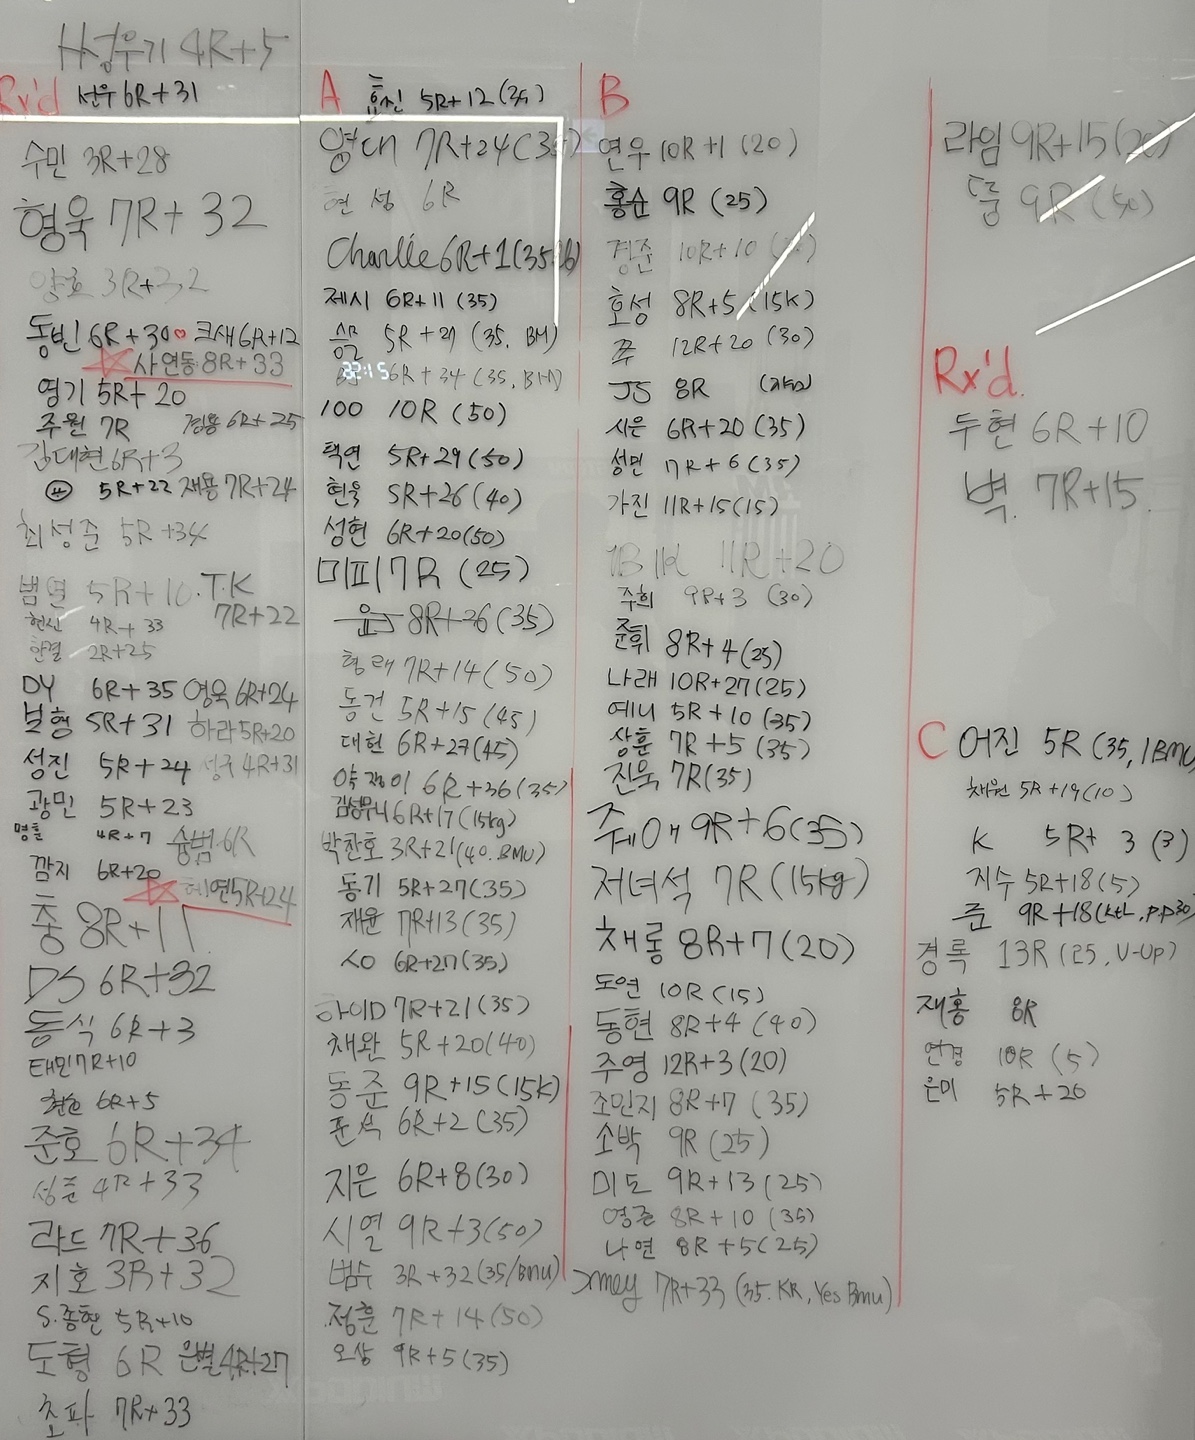 H성우기 4R+5
Rx'd 선우 6R+31
수민 3R+28
형욱 7R+32
양호 3R+32
동빈 6R+30 크새 6R+12
사연동 8R+33
영기 5R+20
주원 7R 경용 6R+25
김대현 6R+3
5R+22 재용 7R+24
최성준 5R+34
범연 5R+10 T.K
7R+22
헌신 4R+33
한결 2R+25
DY 6R+35 영욱 6R+24
보형 5R+31 하라 5R+20
성진 5R+24 성규 4R+31
광민 5R+23
명훈 4R+7 숭범 6R
깜지 6R+20
혜연 5R+24
충 8R+11
DS 6R+32
동식 6R+3
태민 7R+10
6R+5
준호 6R+34
성준 4R+33
라드 7R+36
지호 3R+32
S.종현 5R+10
도형 6R 은별 4R+27
초파 7R+33
A 효신 5R+12 (35)
영대 7R+24 (35)
현성 6R
Charlie 6R+1 (35
제시 6R+11 (35)
5R+29 (35. BM)
6R+34 (35, BM)
100 10R (50)
택연 5R+29 (50)
현욱 5R+26 (40)
성현 6R+20 (50)
미피 7R (25)
8R+26 (35)
형래 7R+14 (50)
동건 5R+15 (45)
대현 6R+27 (45)
약쟁이 6R+36 (35)
6R+17 (15kg)
박찬호 3R+21 (40. BMU)
동기 5R+27 (35)
재윤 7R+13 (35)
6R+27 (35)
하이D 7R+21 (35)
채완 5R+20 (40)
동준 9R+15 (15K)
윤석 6R+2 (35)
지은 6R+8 (30)
시열 9R+3 (50)
범수 3R+32 (35/BMU)
정훈 7R+14 (50)
오상 9R+5 (35)
B
연우 10R+1 (20)
홍순 9R (25)
경준 10R+10
호성 8R+5 (15K)
쭈 12R+20 (30)
JS 8R
시은 6R+20 (35)
성민 7R+6 (35)
가진 11R+15 (15)
11R+20
주희 9R+3 (30)
준휘 8R+4 (25)
나래 10R+27 (25)
예니 5R+10 (35)
상훈 7R+5 (35)
진욱 7R (35)
쥬에 9R+6 (35)
저녀석 7R (15kg)
채롱 8R+7 (20)
도연 10R (15)
동현 8R+4 (40)
주영 12R+3 (20)
조민지 8R+7 (35)
소박 9R (25)
미도 9R+13 (25)
영준 8R+10 (35)
나연 8R+5 (25)
7R+33 (35. KR, Yes Bmu)
라임 9R+15 (20)
뚱 9R (50)
Rx'd.
두현 6R+10
벽. 7R+15.
C 어진 5R (35, 1BMU)
채원 5R+19 (10)
K 5R+3 (3)
지수 5R+18 (5)
준 9R+18
경록 13R (25, V-Up)
재홍 8R
연경 10R (5)
은미 5R+20